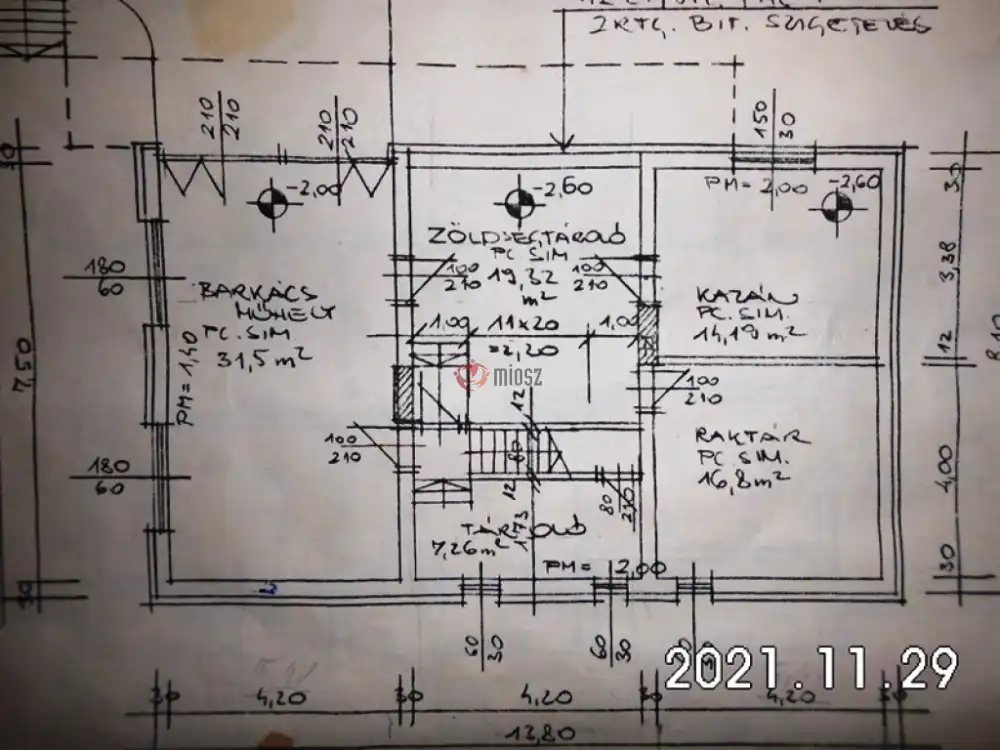 2 RTG. BIT. SZIGETELÉS
210
210
210
210
150
30
-2,00
-2,60
PM= 2,00
-2,60
ZÖLDSÉGTÁROLÓ
PC SIM
19,32
m²
100
210
100
210
180
60
BARKÁCS
MŰHELY
PC. SIM
31,5 m²
PM= 1,40
KAZÁN
PC. SIM.
14,19 m²
1,00
11x20
1,00
=2,20
miosz
12
100
210
100
210
RAKTÁR
PC SIM.
16,8 m²
180
60
60
12
80
210
TÁROLÓ
1,73
7,26 m²
PM= 2,00
30
3,38
12
4,00
30
7,50
30
60
30
60
30
2021.11.29
30
4,20
30
4,20
30
4,20
13,80